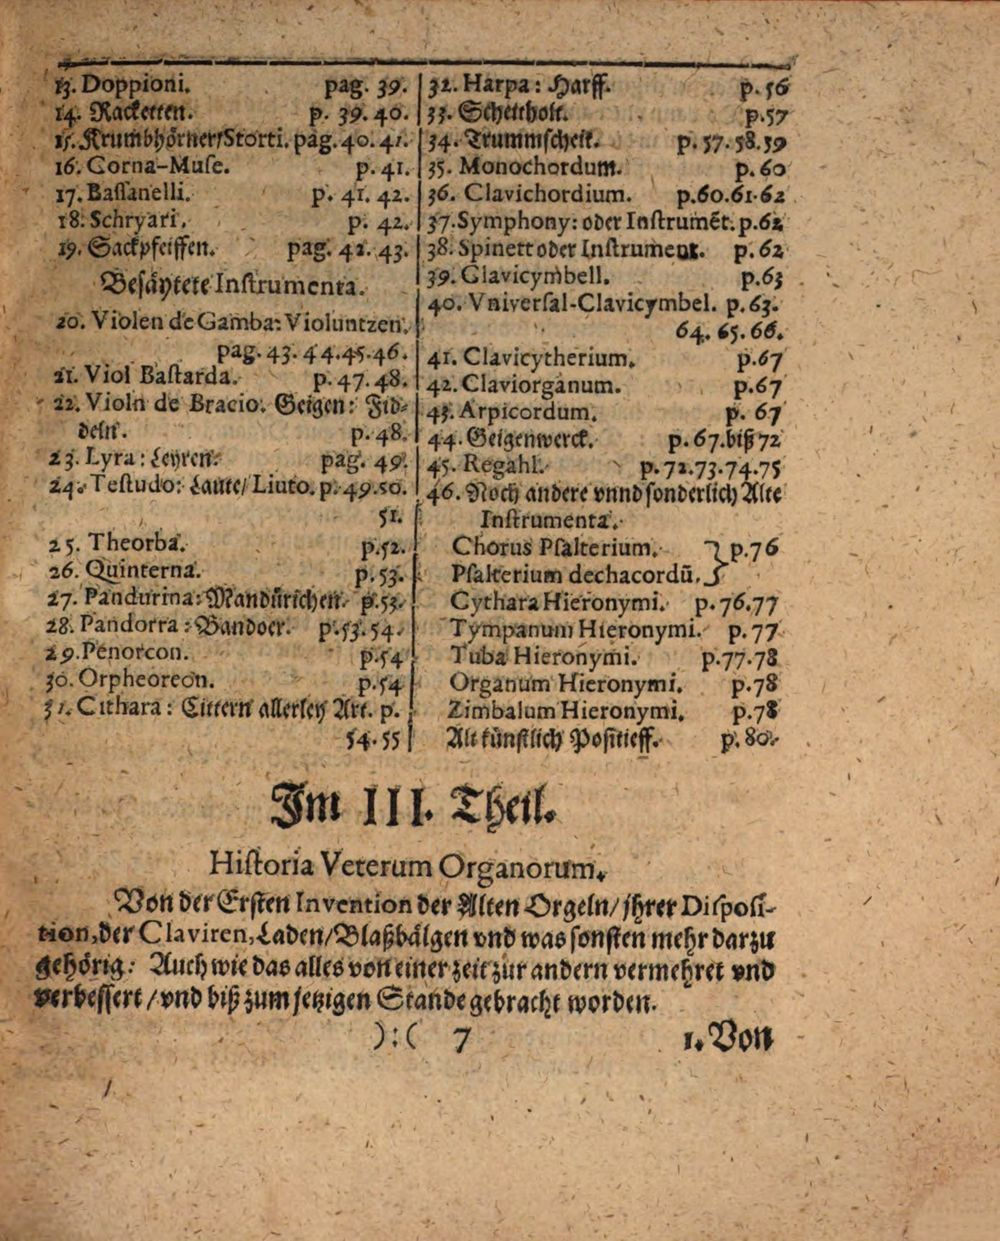 13. Doppioni. pag. 39.
14. Racketten. p. 39. 40.
15. Krumbhörner/Storti. pag. 40. 41.
16. Corna-Muſe. p. 41.
17. Baſſanelli. p. 41. 42.
18. Schryari. p. 42.
19. Sackpfeiffen. pag. 42. 43.
Beſäytete Inſtrumenta.
20. Violen de Gamba: Violuntzen.
pag. 43. 44. 45. 46.
21. Viol Baſtarda. p. 47. 48.
22. Violn de Bracio. Geigen: Fid⸗
deln. p. 48.
23. Lyra: Leyren. pag. 49.
24. Teſtudo: Laute/ Liuto. p. 49. 50.
51.
25. Theorba. p. 52.
26. Quinterna. p. 53.
27. Pandurina: Mandürichen. p. 53.
28. Pandorra: Bandoer. p. 53. 54.
29. Penorcon. p. 54
30. Orpheoreon. p. 54
31. Cithara: Cittern allerley Art. p.
54. 55
32. Harpa: Harff. p. 56
33. Scheitholt. p. 57
34. Trummſcheit. p. 57. 58. 59
35. Monochordum. p. 60
36. Clavichordium. p. 60. 61. 62
37. Symphony: oder Inſtrumẽt. p. 62
38. Spinett oder Inſtrument. p. 62
39. Clavicymbell. p. 63
40. Vniverſal-Clavicymbel. p. 63.
64. 65. 66.
41. Clavicytherium. p. 67
42. Claviorganum. p. 67
43. Arpicordum. p. 67
44. Geigenwerck. p. 67. biß 72
45. Regahl. p. 72. 73. 74. 75
46. Noch andere vnnd ſonderlich Alte
Inſtrumenta.
Chorus Pſalterium. } p. 76
Pſalterium dechacordū.
Cythara Hieronymi. p. 76. 77
Tympanum Hieronymi. p. 77
Tuba Hieronymi. p. 77. 78
Organum Hieronymi. p. 78
Zimbalum Hieronymi. p. 78
Alt künſtlich Poſitieff. p. 80.
Im III. Theil.
Hiſtoria Veterum Organorum.
Von der Erſten Invention der Alten Orgeln/ jhrer Diſpoſi-
tion, der Claviren, Laden/ Blaßbälgen vnd was ſonſten mehr darzu
gehörig: Auch wie das alles von einer zeit zur andern vermehret vnd
verbeſſert / vnd biß zum jetzigen Stande gebracht worden.
):( 7 1. Von